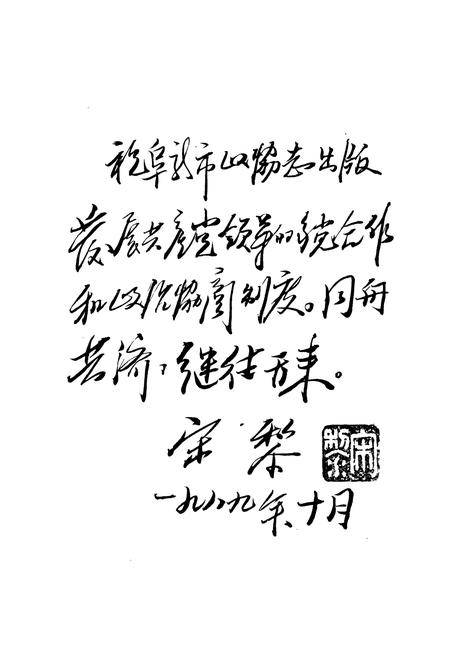 祝阜新市政協志出版
发展共产党领导的多党合作
和政治協商制度。同舟
共济，继往开来。
宋黎
宋黎
一九八九年十月